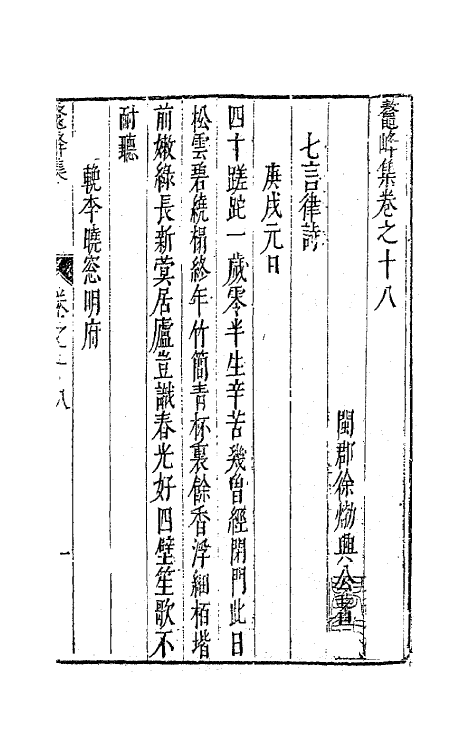 鼇峰集卷之十八
閩郡徐㶿興公著
七言律詩
庚戌元日
四十蹉跎一歲零半生辛苦幾曾經閉門此日
松雲碧繞榻終年竹簡青杯裏餘香浮細栢堦
前嫩綠長新蓂居廬豈識春光好四壁笙歌不
耐聽
輓李曉窓明府
鼇峰集
卷之十八
一